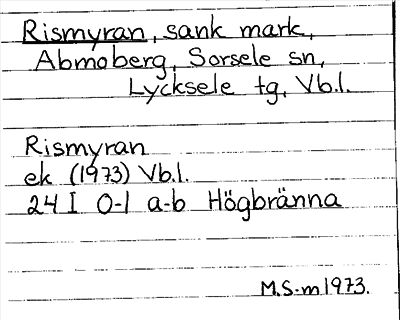 Rismyran, sank mark,
Abmoberg, Sorsele sn,
Lycksele tg, Vb.l.
Rismyran
ek (1973) Vb.l.
24 I 0-1 a-b Högbränna
M.S-m 1973.